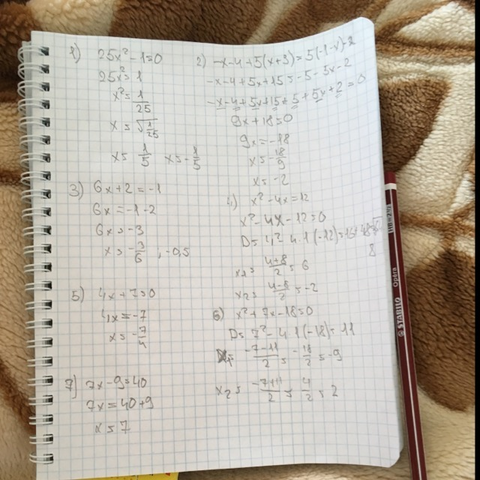 1) 25x² - 1 = 0
25x² = 1
x² = 1/25
x = √1/25
x = 1/5 x = -1/5
2) -x-4+5(x+3)=5(-1-x)-2
-x-4+5x+15=-5-5x-2
-x-4+5x+15+5+5x+2=0
9x+18=0
9x=-18
x=-18/9
x=-2
3) 6x+2=-1
6x=-1-2
6x=-3
x=-3/6, -0,5
4) x²-4x=12
x²-4x-12=0
x₁= 4+8/2 = 6
x₂= 4-8/2 = -2
5) 4x+7=0
4x=-7
x=-7/4
6) x²+7x-18=0
D=7²-4·1(-18)=11
-7-11/2 = -18/2 = -9
x₂= -7+11/2 = 4/2 = 2
7) 7x-9=40
7x=40+9
x=7
STABILO Opéra